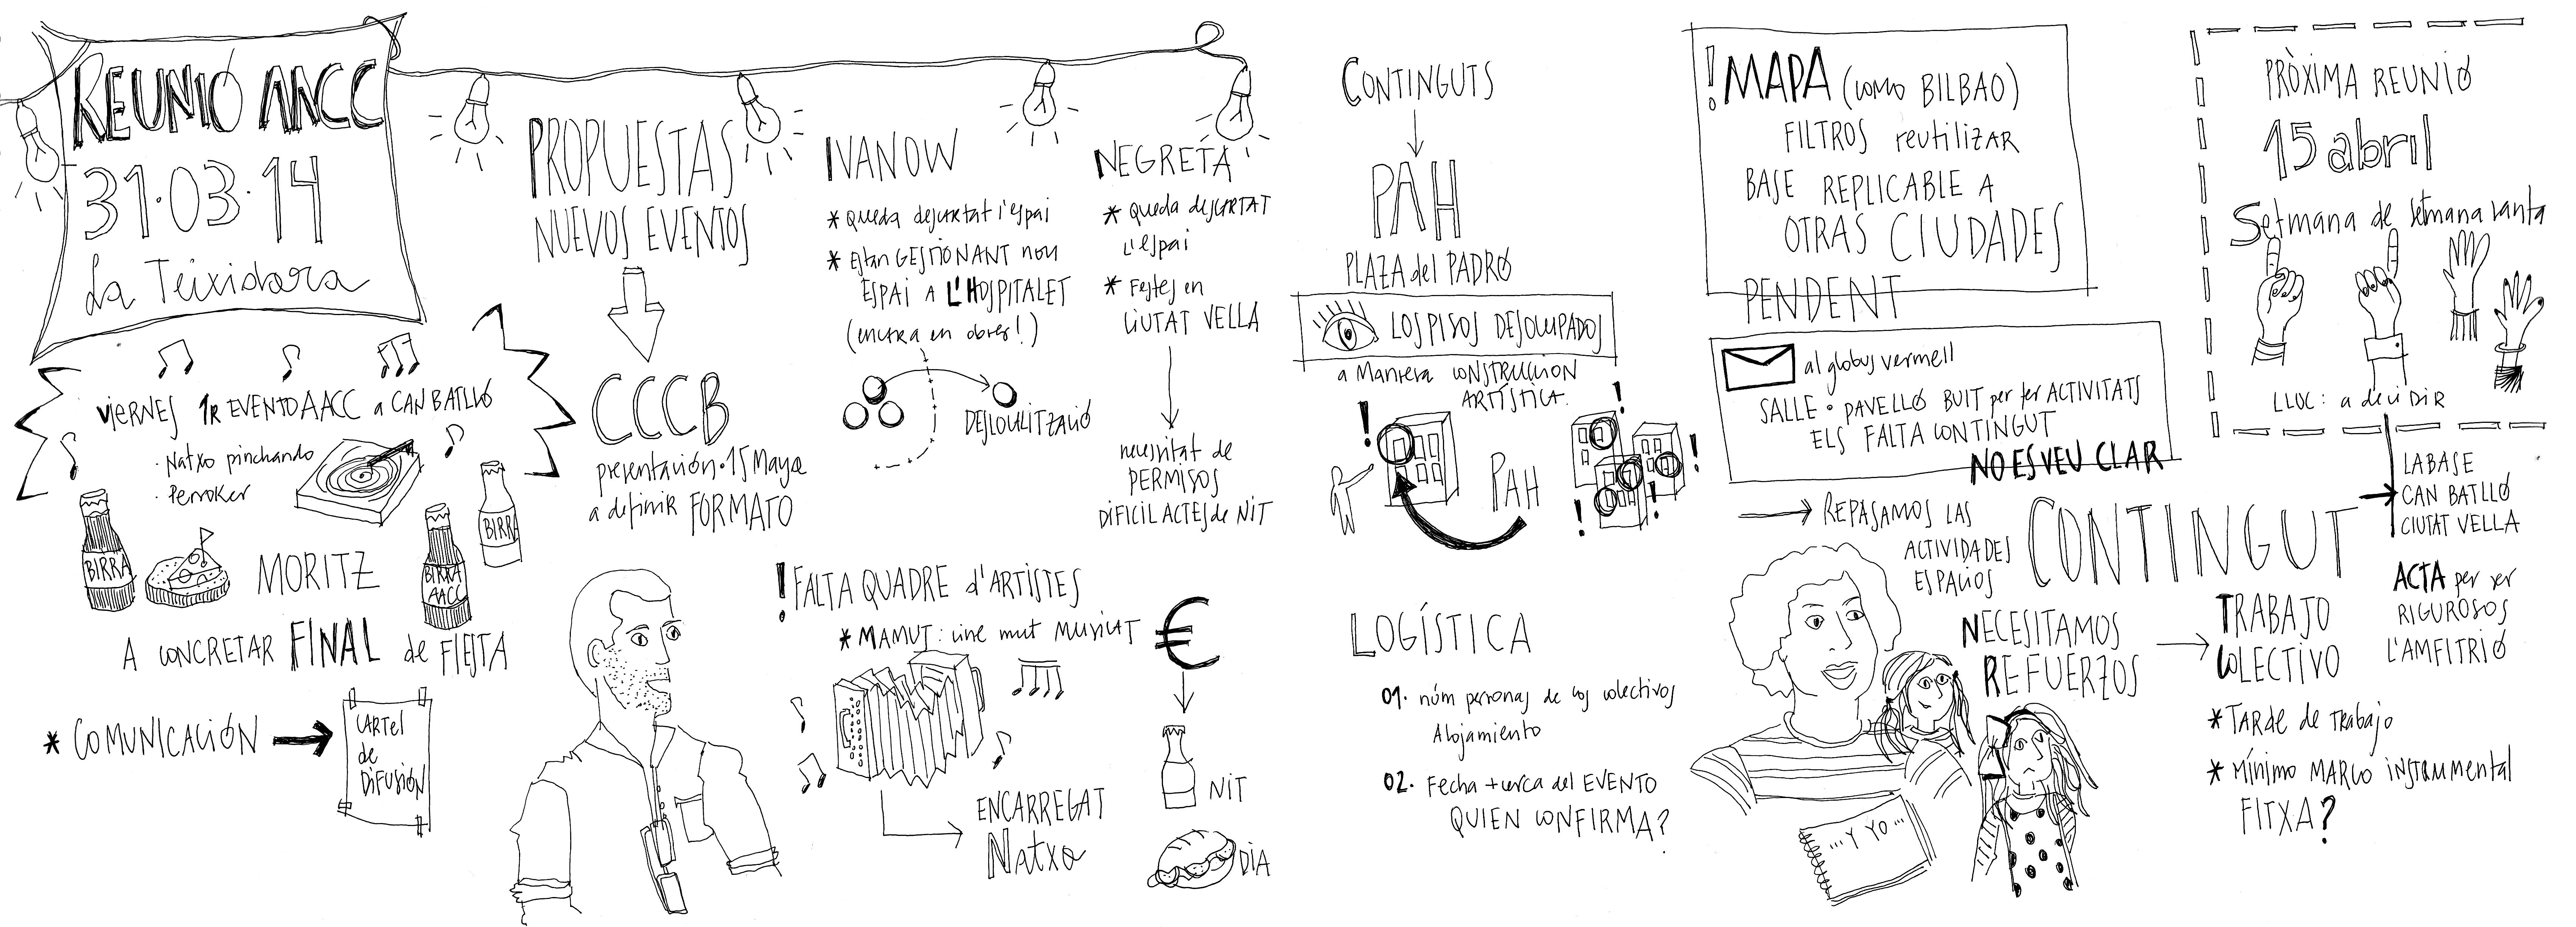 REUNIÓ AACC
31·03·14
La Teixidora
VIERNES 1R EVENTO AACC a CAN BATLLÓ
· Natxo pinchando
· Perroker
BIRRA
MORITZ
BIRRA
AACC
BIRRA
A CONCRETAR FINAL de FIESTA
* COMUNICACIÓN
CARTEL
de
DIFUSIÓN
PROPUESTAS
NUEVOS EVENTOS
CCCB
presentación · 15 Mayo
a definir FORMATO
IVANOW
* Queda descartat l'espai
* Estan GESTIONANT nou
ESPAI A L'HOSPITALET
(encara en obres!)
DESLOCALITZACIÓ
NEGRETA
* Queda desCARTAT
l'espai
* Festes en
CIUTAT VELLA
necesitat de
PERMISOS
DIFICIL ACTES de NIT
! FALTA QUADRE d'ARTISTES
* MAMUT: cine mut MUSICAT
ENCARREGAT
Natxo
€
NIT
DIA
CONTINGUTS
PAH
PLAZA del PADRÓ
LOS PISOS DESOCUPADOS
a Manera CONSTRUCCION
ARTÍSTICA.
!
PAH
! ! ! !
LOGÍSTICA
01. núm personas de los colectivos
Alojamiento
02. Fecha + cerca del EVENTO
QUIEN CONFIRMA?
! MAPA (como BILBAO)
FILTROS reutilizar
BASE REPLICABLE A
OTRAS CIUDADES
PENDENT
al globus vermell
SALLE · PAVELLÓ BUIT per fer ACTIVITATS
ELS FALTA CONTINGUT
NO ES VEU CLAR
REPASAMOS LAS
ACTIVIDADES
ESPACIOS
CONTINGUT
NECESITAMOS
REFUERZOS
"...Y YO..."
TRABAJO
COLECTIVO
* TARDE de TRabajo
* Mínimo MARCO inSTRUMental
FITXA?
PRÒXIMA REUNIÓ
15 abril
Setmana de setmana santa
LLOC: a deciDIR
LA BASE
CAN BATLLÓ
CIUTAT VELLA
ACTA per ser
RIGUROSOS
L'AMFITRIÓ